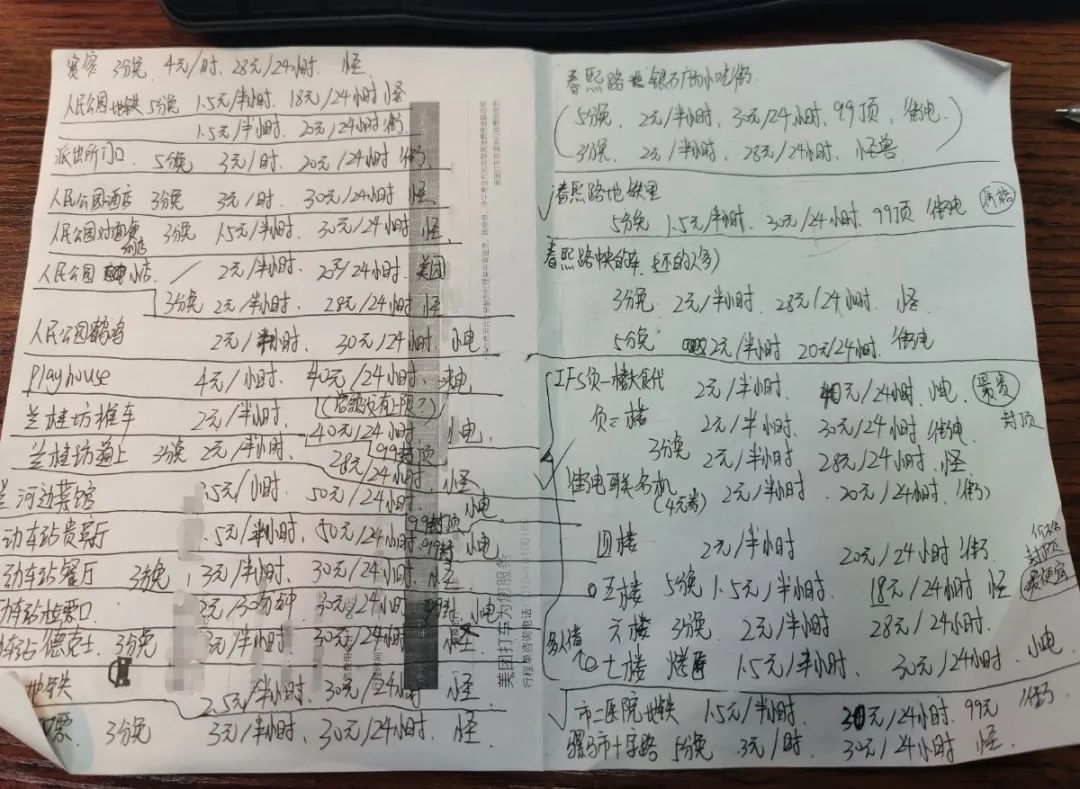 宽窄 3分免 4元/时、28元/24小时、怪
人民公园地铁 5分免 1.5元/半小时、18元/24小时 怪
1.5元/半小时、20元/24小时 街
派出所门口 5分免 3元/时、20元/24小时 街
人民公园酒店 3分免 3元/时、30元/24小时 怪
人民公园对面便 3分免 1.5元/半小时、30元/24小时 怪
人民公园 小店 / 2元/半小时、20元/24小时、美团
3分免 2元/半小时、28元/24小时 怪
人民公园鹤鸣 2元/半小时、30元/24小时、小电
Playhouse 4元/小时、40元/24小时、来电
(总额没有上限?)
兰桂坊推车 2元/半小时、40元/24小时 小电
99封顶
兰桂坊道上 3分免 2元/半小时、28元/24小时、怪
兰 河边菜馆 5元/小时、50元/24小时、小电
99封顶
动车站贵宾厅 5元/半小时、50元/24小时、99封 小电
动车站餐厅 3分免、3元/半小时、30元/24小时、怪
动车站检票口 2元/30分钟 30元/24小时 99封 小电
车站 德克士 3分免 3元/半小时、30元/24小时 怪
地铁 2.5元/半小时、30元/24小时 怪
票 3分免 3元/半小时、30元/24小时、怪
美团打车为您服务
行程单咨询电话：
春熙路 银石广场小吃街
5分免、2元/半小时、30元/24小时、99顶、街电
3分免、2元/半小时、28元/24小时、怪兽
春熙路地铁里
5分免 1.5元/半小时、30元/24小时、99顶 街电
春熙路中 的 (还的人多)
3分免 2元/半小时、28元/24小时 怪
5分免 2元/半小时 20元/24小时、街电
IFS负一楼大食代 2元/半小时 40元/24小时、小电 最贵
封顶
负二楼 2元/半小时 30元/24小时、街电
3分免 2元/半小时 28元/24小时、怪
街电联名机 (4元券) 2元/半小时、20元/24小时、街
四楼 2元/半小时 20元/24小时 街
价格
封顶
最便宜
五楼 5分免 1.5元/半小时、18元/24小时 怪
六楼 3分免 2元/半小时 28元/24小时、
多人借
七楼 1.5元/半小时、30元/24小时、小电
市二医院地铁 1.5元/半小时、30元/24小时、99元 街
骡马市十字路 5分免 3元/时、30元/24小时 怪